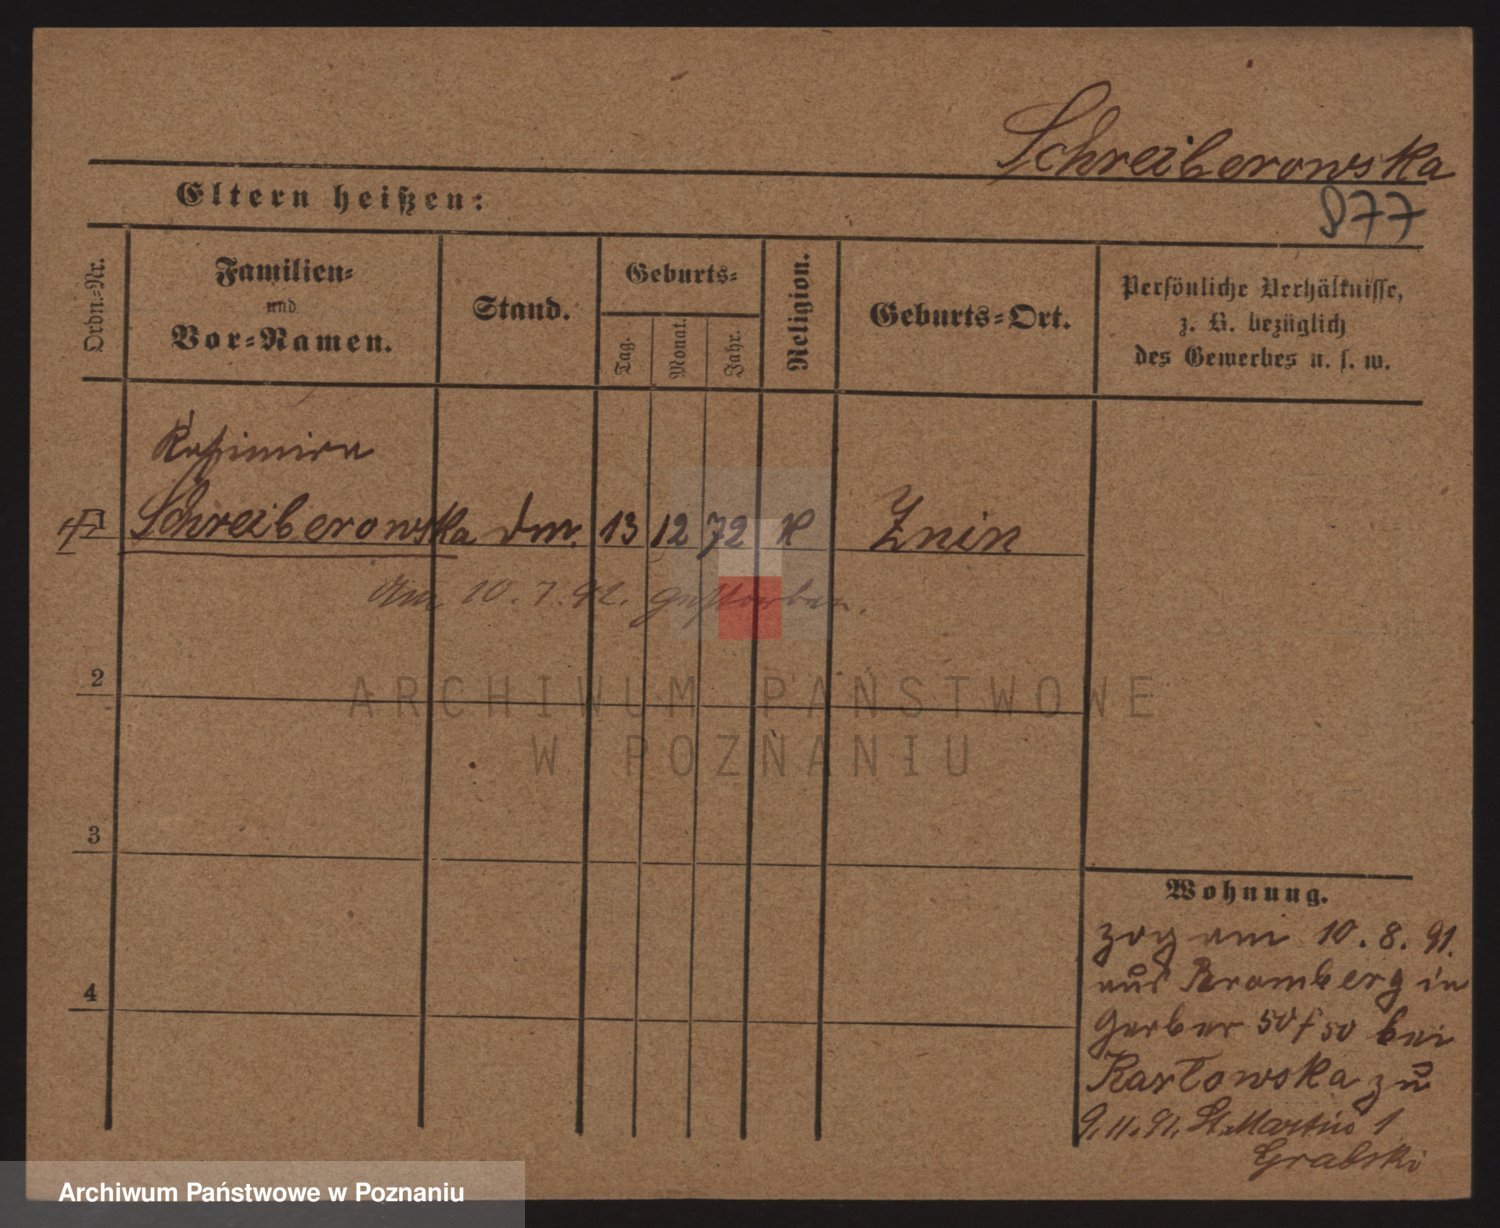 Schreiberowska
877
Eltern heißen:
Ordn.-Nr.
Familien-
und
Vor-Namen.
Stand.
Geburts-
Tag.
Monat.
Jahr.
Religion.
Geburts-Ort.
Persönliche Verhältnisse,
z. B. bezüglich
des Gewerbes u. s. w.
Kasimira
1 Schreiberowska 13 12 72 K Znin
Am 10.7.92. gestorben.
2
3
4
Wohnung.
zog am 10.8.91.
aus Bromberg in
Gerber 50 50 bei
Karłowska zu
9.11.91. St. Martin 1
Grabski
ARCHIWUM PAŃSTWOWE
W POZNANIU
Archiwum Państwowe w Poznaniu